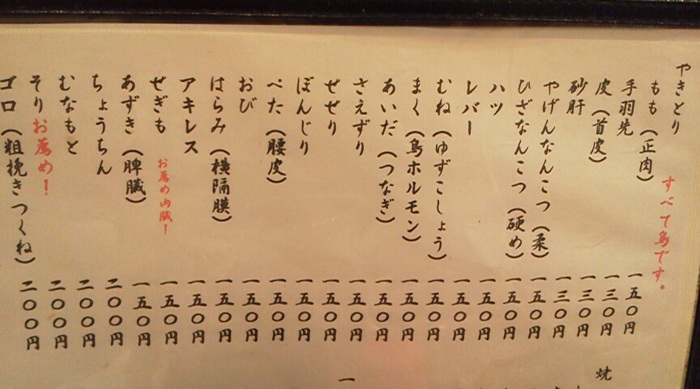 やきとり
すべて鳥です。
もも（正肉） 一五〇円
手羽先 一三〇円
皮（首皮） 一三〇円
砂肝 一三〇円
やげんなんこつ（柔） 一五〇円
ひざなんこつ（硬め） 一五〇円
ハツ 一五〇円
レバー 一五〇円
むね（ゆずこしょう） 一五〇円
まく（鳥ホルモン） 一五〇円
あいだ（つなぎ） 一五〇円
さえずり 一五〇円
せせり 一五〇円
ぼんじり 一五〇円
ぺた（腰皮） 一五〇円
おび 一五〇円
はらみ（横隔膜） 一五〇円
アキレス 一五〇円
せぎも お薦め内臓！ 一五〇円
あずき（脾臓） 一五〇円
ちょうちん 二〇〇円
むなもと 二〇〇円
そりお薦め！ 二〇〇円
ゴロ（粗挽きつくね） 二〇〇円
焼
一